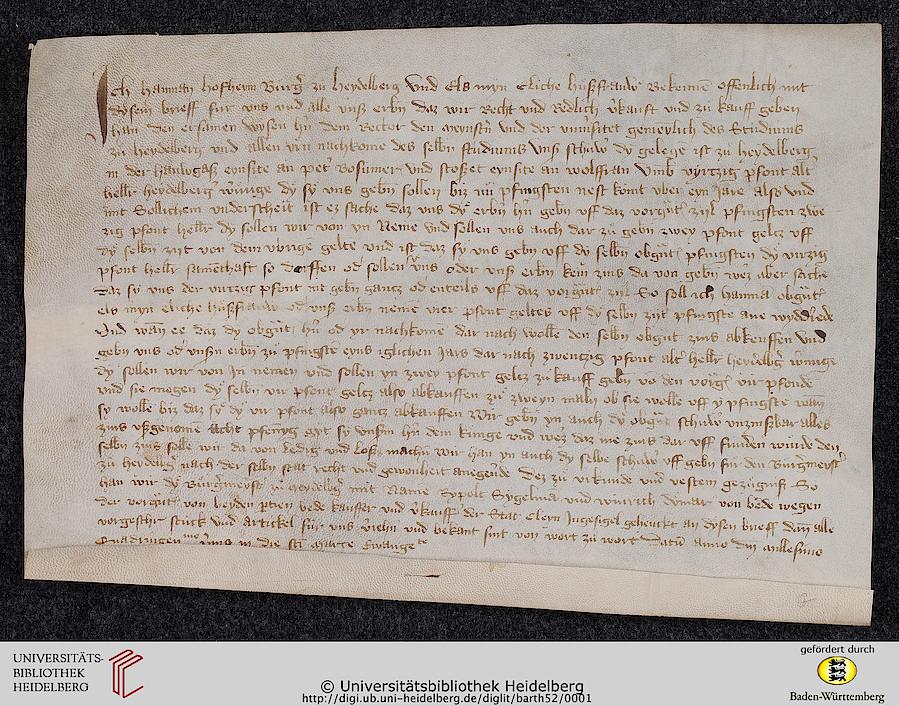 Ich Hannan Hofheim Burg̃ zu Heydelberg Und Els myn Eliche hußfrauwe Bekennē offenlich mit
dysem brieff fur uns und alle unß erbn daz wir Recht und Redlich v̉kaufft und zu kauff geben
han den ersamen wysen hn̄ dem Rector den meinstn̄ und der univ̉sitet gemeynlich des Studiums
zu heydelberg und allen yrn nachkōme des selbn studiums unß schuwr̉ dy gelege ist zu heydelberg
in der hantgaß eynsite an pet̉ und stosset eynsite an wolffran umb vyrtzig pfont alt̉
hellr heydelberg̉ wūnge dy sy uns gebn sollen biz nū pfingsten nest komt uber eyn Jare also und
mit Sollichem underscheit ist ez sache daz uns dy erbn hn̄ gebn uff daz vorgūt̉ zyl pfingsten zwe
zig pfont hellr dy sollen wir von yn Neme und sollen uns auch dar zu gebn zwey pfont geltz uff
dy selbn zyt von dem ubrige gelte und ist daz sy uns gebn uff dy selbn obgūt̉ pfingsten dy virzig
pfont hellr samēthafft so dorffen od̉ sollen uns oder unß erbn kein zins da von gebn wez aber sache
daz sy uns der virtzig pfont nit gebn gantz od̉ enteils uff daz vorgūt̉ zyl So soll ich hanna obgūt̉
els myn eliche hußfrauw od̉ unß erbn neme vier pfont geltes uff dy selbn zyt pfingste ane wydd̉rede
Und wan ee daz dy obgūt̉ hn̄ od̉ yr nachkome dar nach wolle den selbn obgūt zins abkeuffen und
gebn uns od̉ unsn̄ erbn zu pfingste eyns iglichen Jars dar nach zwentzig pfont alt̉ hellr heydelbg̉ wūnge
dy sollen wir von In nemen und sollen yn zwey pfont geltz zu kauff gebn vō den vorg̃ vir pfonde
und sie megen dy selbn vir pfont geltz also abkauffen zu zweyn maln ob sie welle uff y pfingste wan
sy wolle biz daz sy dy vir pfont also gantz abkauffen Wir gebn yn auch dy obgūt schuwr̉ unzinßbar alles
zins ußgenomē acht pfennyg so unßm hn̄ dem kunige und wez daz me zins dar uff funden wurde den
selbn zins solle wir da von ledig und loß machn wir han yn auch dy selbe schuwr̉ uff gebn fur den Burg̃meyst̉
zu heydelbg̉ nach der selbn stat recht und gewonheit anegeūde Dez zu urkunde und vestem gezugniß So
han wir dy Burg̃meyst̉ zu heydelbg̉ mit Name Sypolt Sygelman und winrich dymar von bede wegen
der vorgūt̉ von beyden ptien bede kauffer und v̉kauff̉ der Stat Cleyn Ingesigel gehenckt an dysen brieff dan alle
vorgeschr̉ stuck und artickel fur uns und bekant sint von wort zu wort Datū anno dn̄i millesimo
Quadringen^mo primo in die sct̄i marce Ewange^te
UNIVERSITÄTS-
BIBLIOTHEK
HEIDELBERG
© Universitätsbibliothek Heidelberg
http://digi.ub.uni-heidelberg.de/diglit/barth52/0001
gefördert durch
Baden-Württemberg